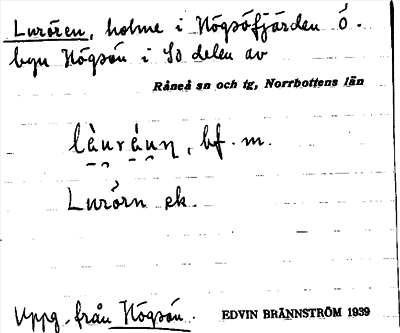 Lurören, holme i Högsöfjärden ö.
byn Högsön i So delen av
Råneå sn och tg, Norrbottens län
làuráun, bf. m.
Lurörn ek.
Uppg. från Högsön.
EDVIN BRÄNNSTRÖM 1939